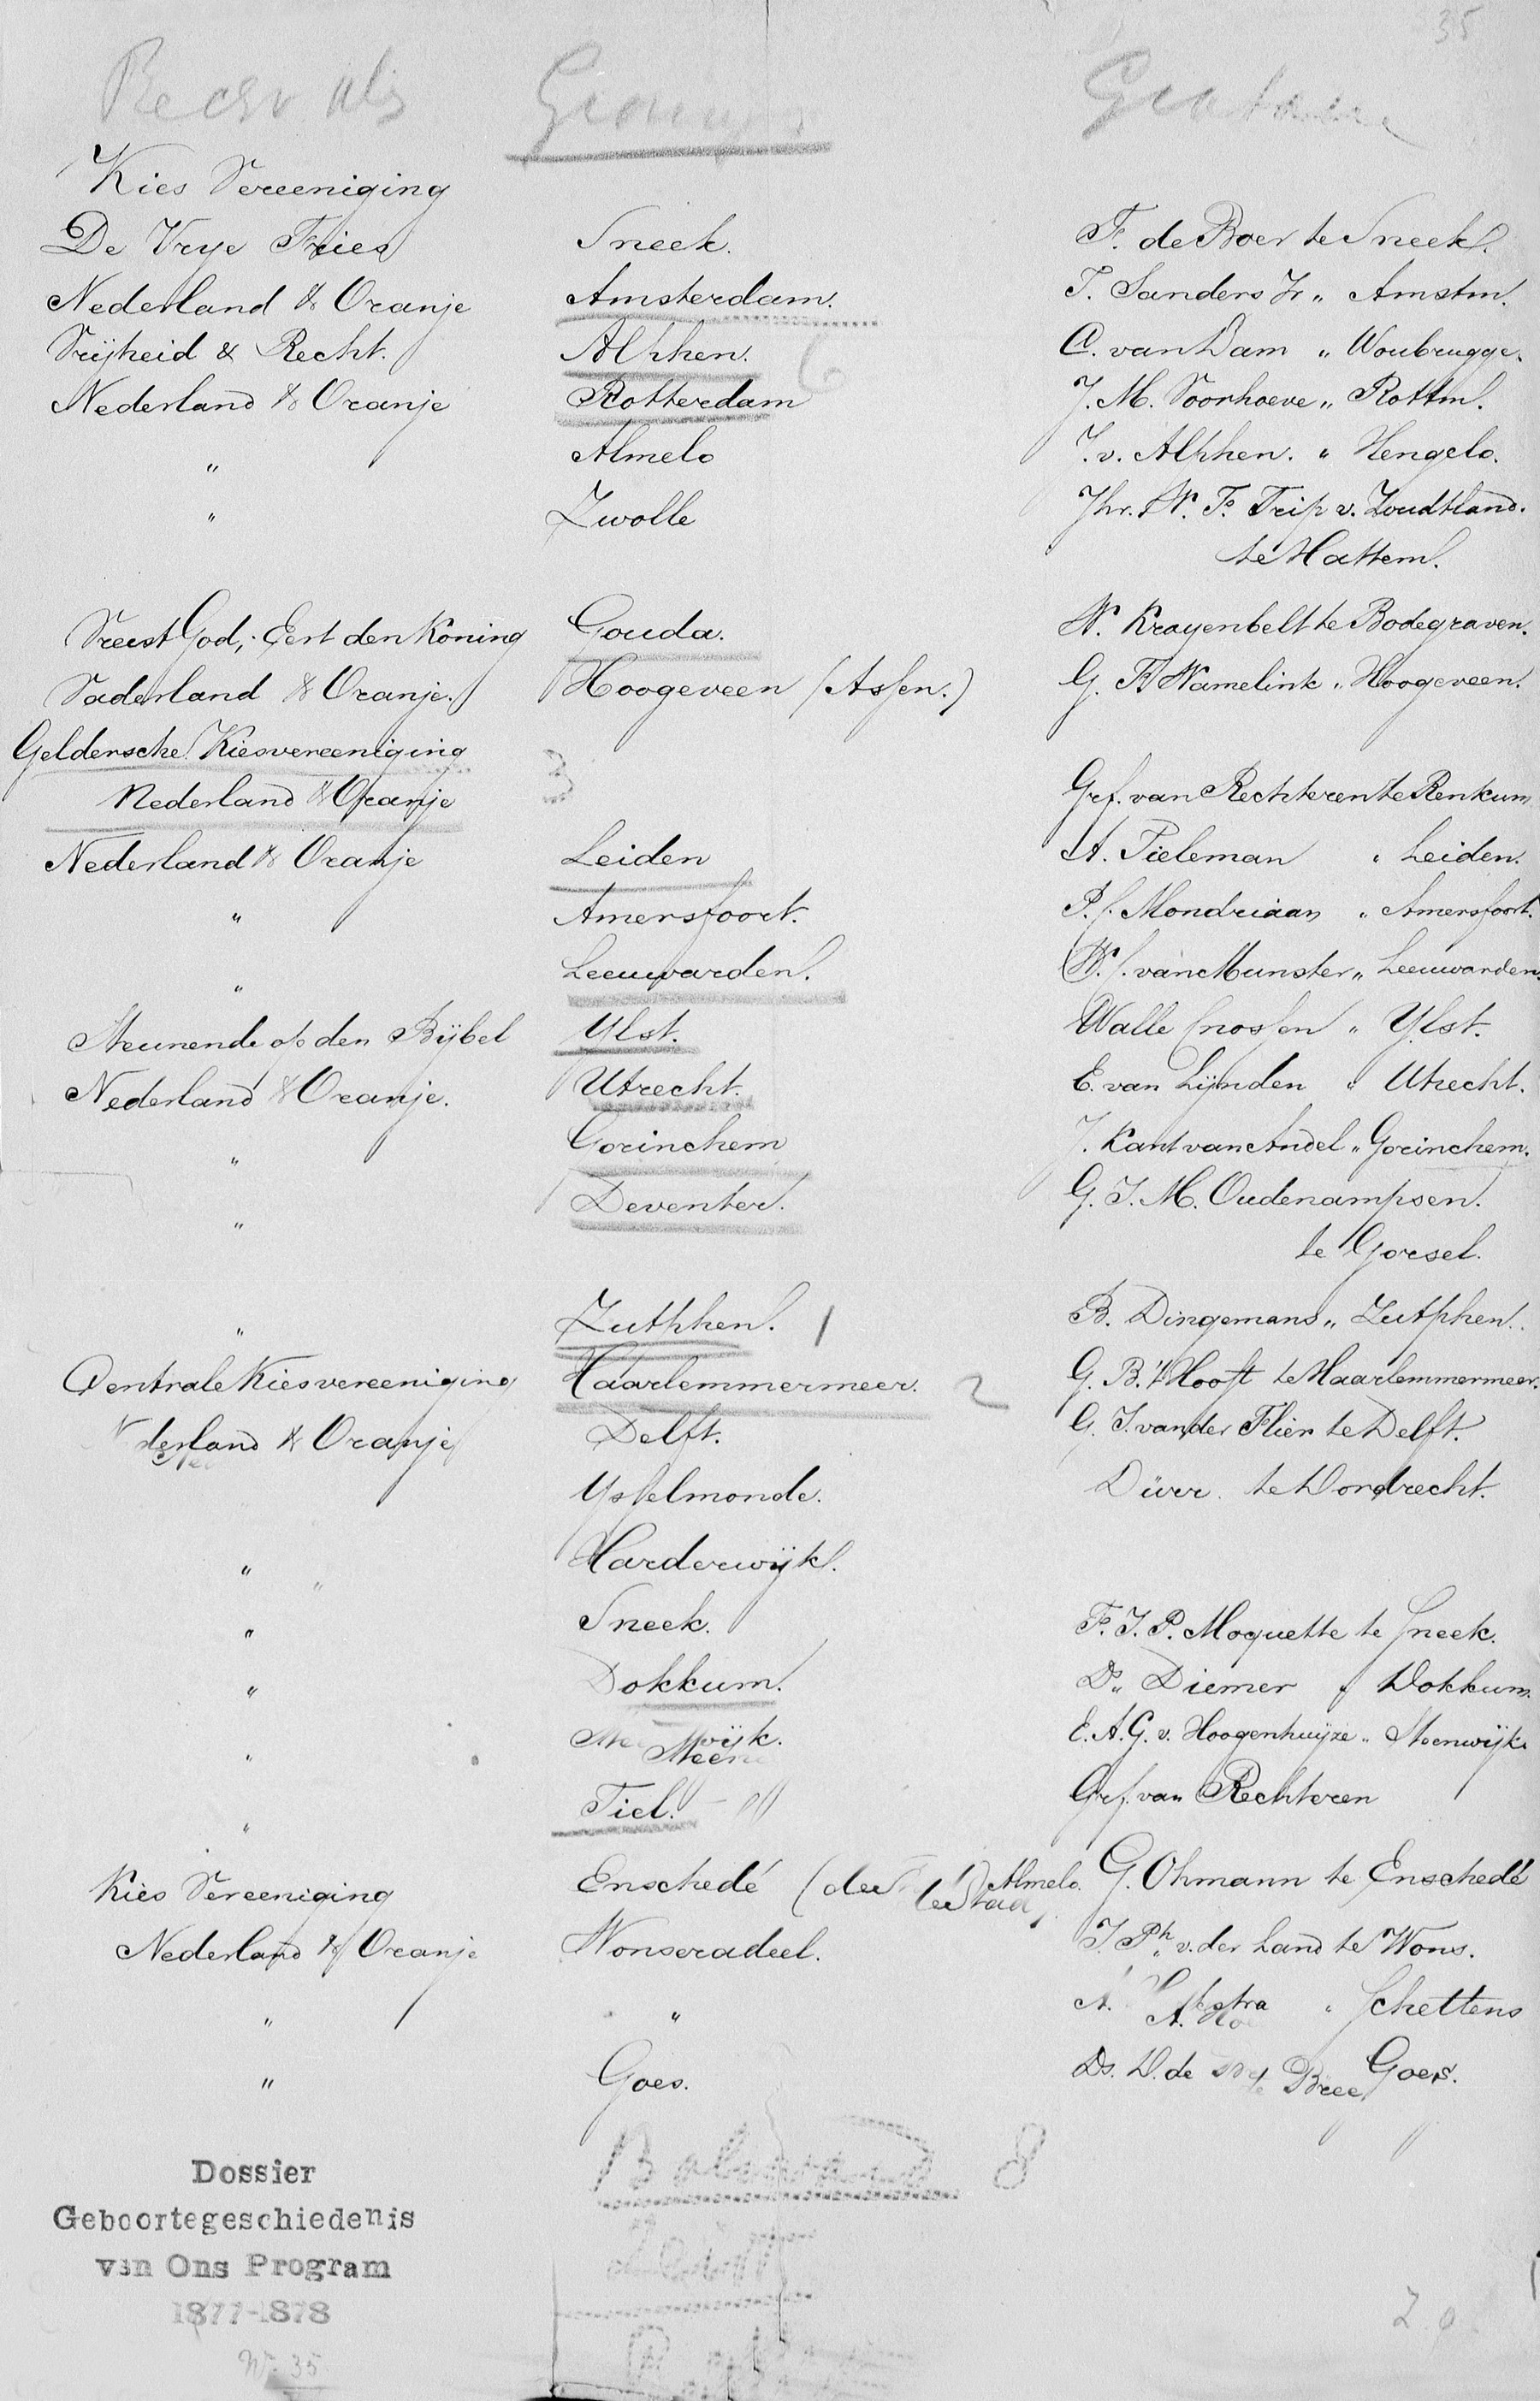 35
Kies Vereeniging
De Vrye Fries Sneek. F. de Boer te Sneek.
Nederland & Oranje Amsterdam. T. Sanders Jr „ Amstm.
Vrijheid & Recht. Alphen. 6 C. van Dam „ Woubrugge.
Nederland & Oranje Rotterdam J. M. Voorhoeve „ Rottm.
„ Almelo J. v. Alphen. „ Hengelo.
„ Zwolle Jhr. W. F. Trip v. Zoudtland.
te Hattem.
Vreest God, Eert den Koning Gouda. W. Krayenbelt te Bodegraven.
Vaderland & Oranje. Hoogeveen (Assen.) G. F. Wamelink „ Hoogeveen.
Geldersche Kiesvereeniging
Nederland & Oranje 3 Grf. van Rechteren te Renkum
Nederland & Oranje Leiden A. Pieleman „ Leiden.
„ Amersfoort. P. C. Mondriaan „ Amersfoort.
„ Leeuwarden. W. C. van Munster „ Leeuwarden.
Steunende op den Bijbel Ylst. Walle Cnossen „ Ylst.
Nederland & Oranje. Utrecht. E. van Lijnden „ Utrecht.
„ Gorinchem J. Kant van Andel „ Gorinchem.
„ Deventer. G. J. M. Oudenampsen.
te Gorsel.
„ Zutphen. 1 B. Dingemans „ Zutphen.
Centrale Kiesvereeniging Haarlemmermeer. 2 G. B. 't Hooft te Haarlemmermeer.
Nederland & Oranje Delft. G. J. van der Flier te Delft.
Ysselmonde. Düer te Dordrecht.
„ „ Harderwijk.
„ Sneek. F. J. P. Moquette te Sneek.
„ Dokkum. Ds. Diemer „ Dokkum
„ E. A. G. v. Hoogenhuijze „ Steenwijk
„ Tiel. Grf. van Rechteren
Kies Vereeniging Enschedé Almelo. G. Ohmann te Enschedé
Nederland & Oranje Wonseradeel. J. Ph. v. der Land te Wons.
„ „ A. „ Schettens
„ Goes. Ds. D. de Bree Goes.
8
Dossier
Geboortegeschiedenis
van Ons Program
1877-1878
No. 35